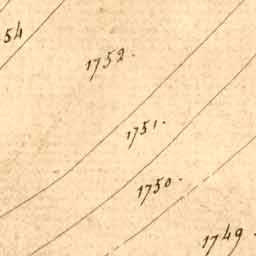 54
1752.
1751.
1750.
1749.